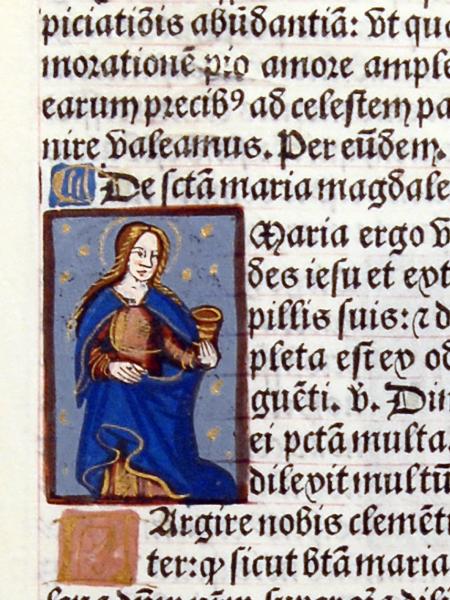 piciatiõis abũdantiã: vt qu
morationẽ pio amore ample
earum precibꝰ ad celestem pa
nire valeamus. Per eũdem.
De sctã maria magdale
Maria ergo v
des iesu et ext
pillis suis: ⁊ d
pleta est ex od
guẽti. v̾. Dim
ei pctã multa.
dilexit multũ
Largire nobis clemẽti
ter: ꝙ sicut btã maria